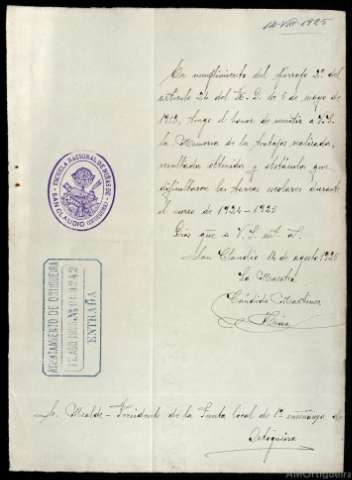 14-VIII-1925
En cumplimiento del párrafo 2º del
artículo 24 del R. D. de 5 de mayo de
1913, tengo el honor de remitir a V. S.
la Memoria de los trabajos realizados,
resultados obtenidos y obstáculos que
dificultaron las tareas escolares durante
el curso de 1924-1925
Dios gue. a V. S. m. a.
San Claudio 14 de agosto 1925
La Maestra
Cándida Martínez
ESCUELA NACIONAL DE NIÑAS DE
SAN CLAUDIO (ORTIGUEIRA)
AYUNTAMIENTO DE ORTIGUEIRA
ENTRADA
Sr. Alcalde-Presidente de la Junta local de 1ª enseñanza de
Ortigueira
AMOrtigueira